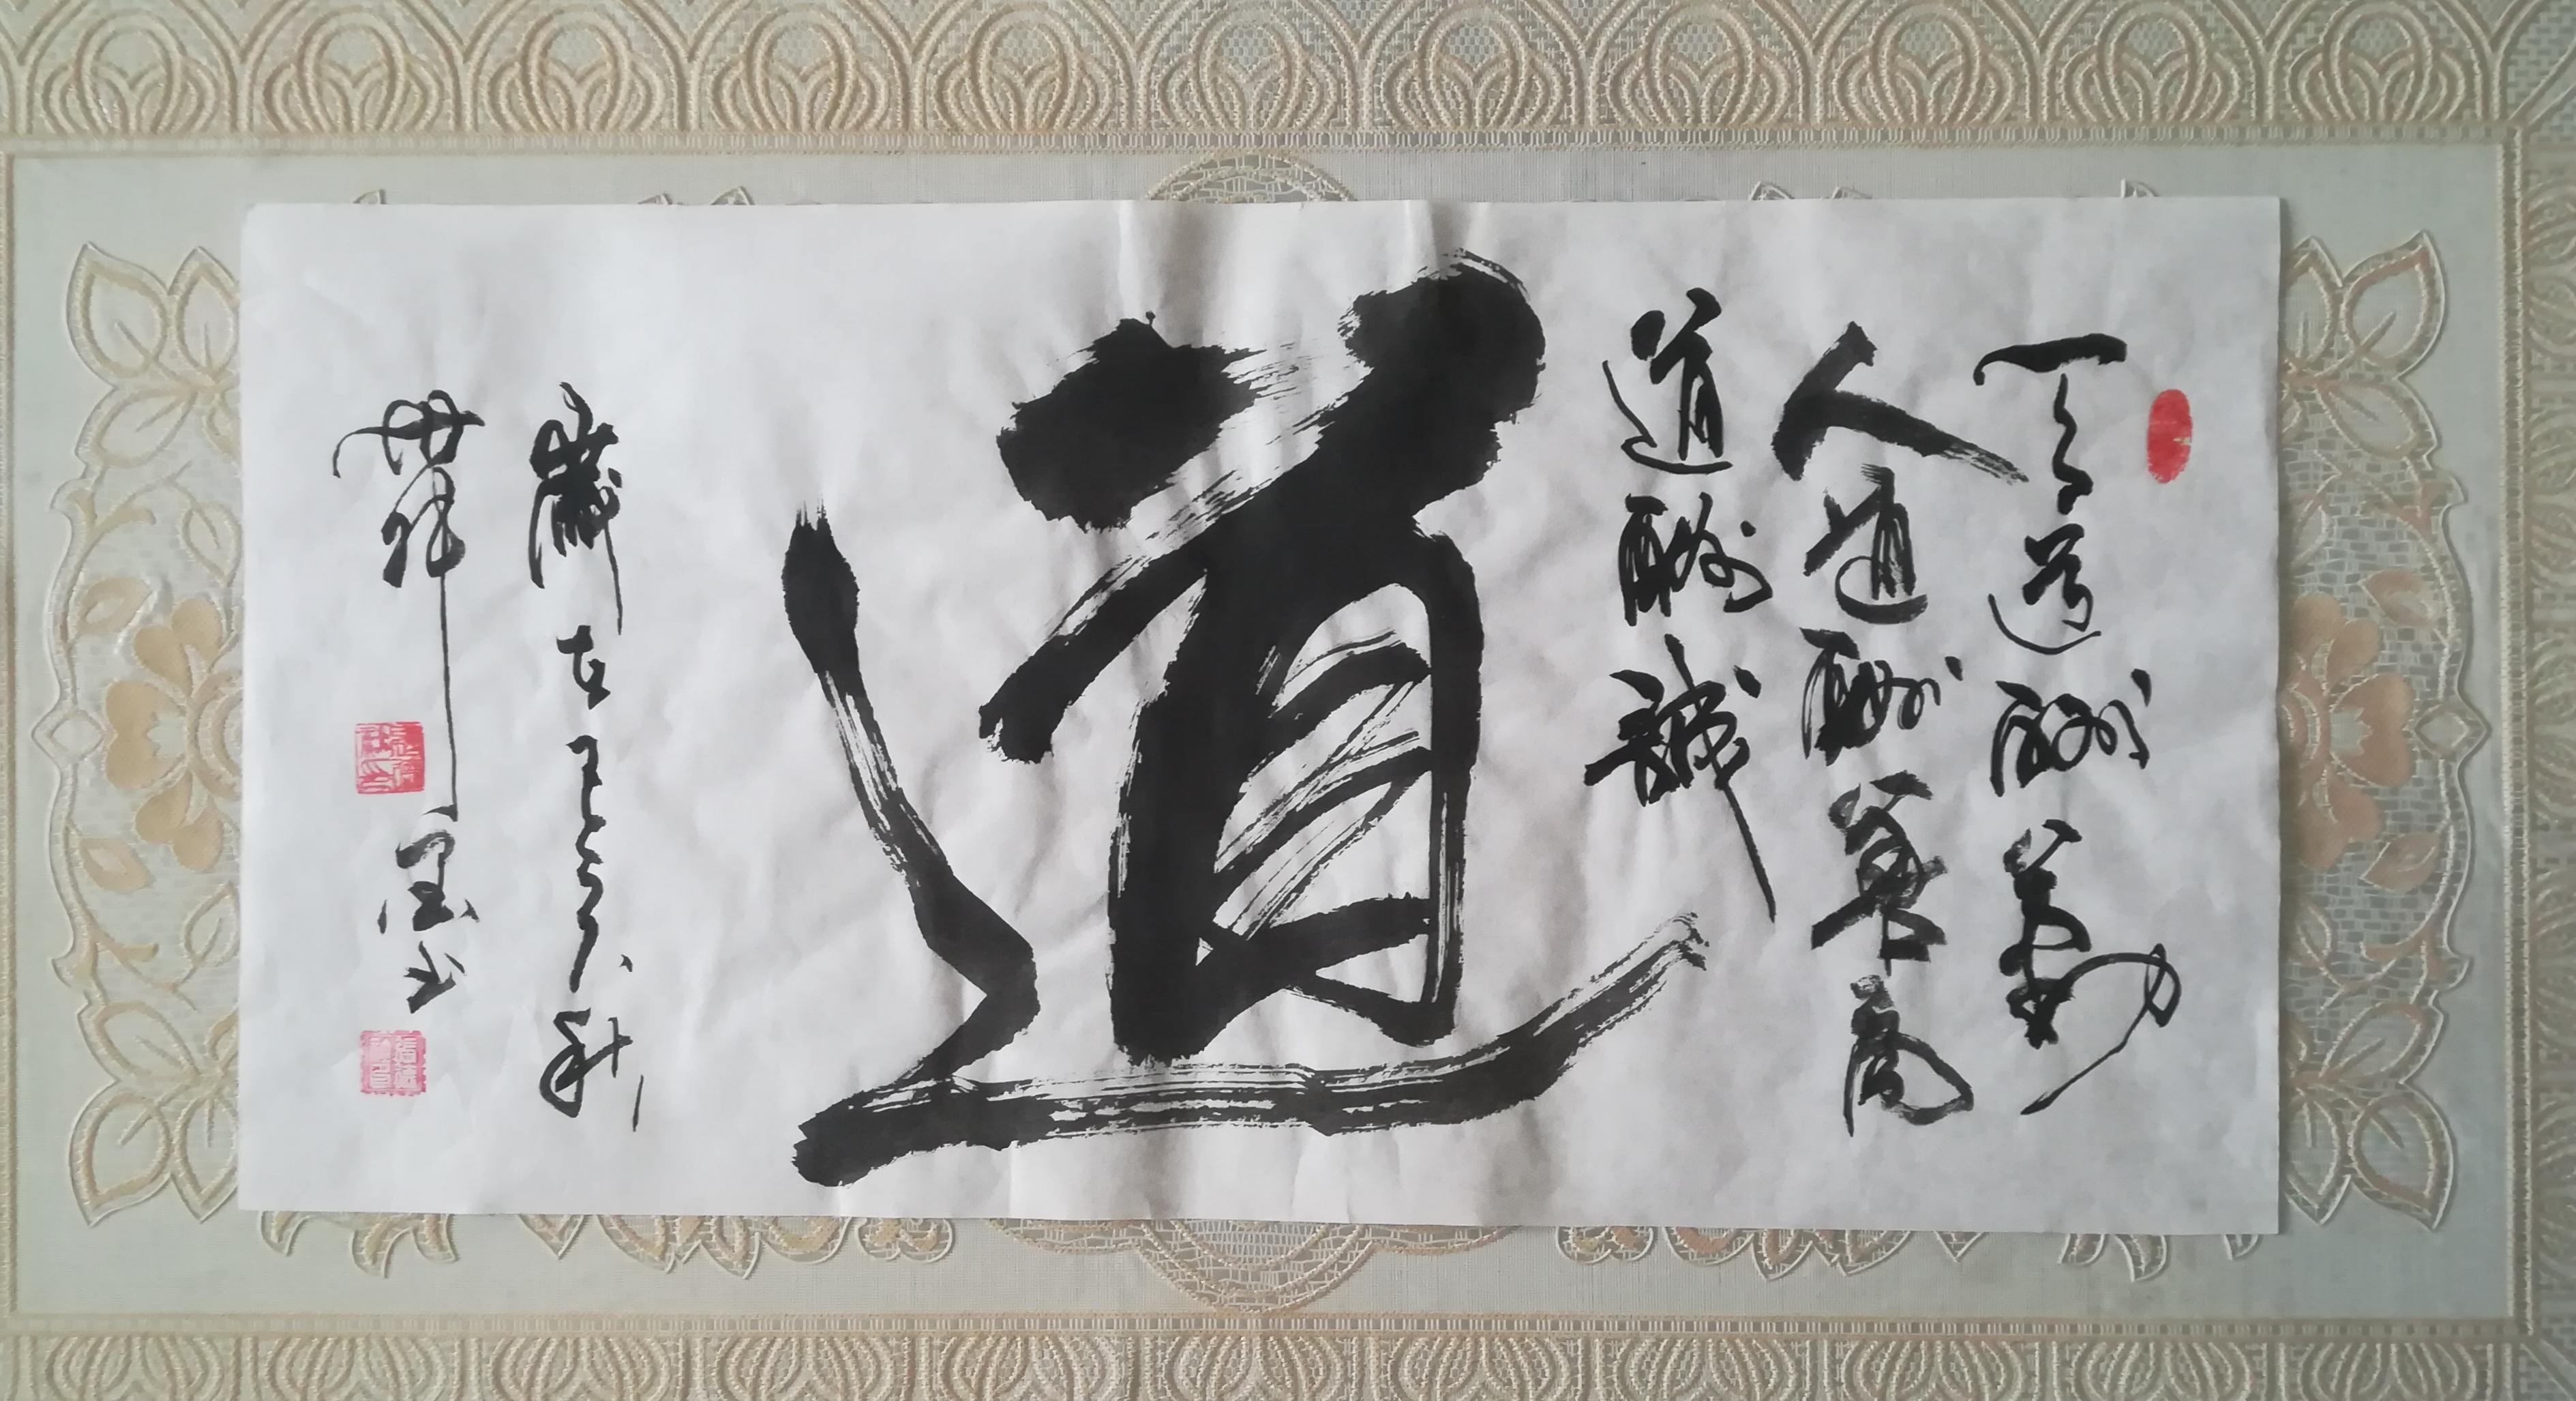 天道酬勤
人道酬善商
道酬誠
道
歲在壬寅秋
世祥